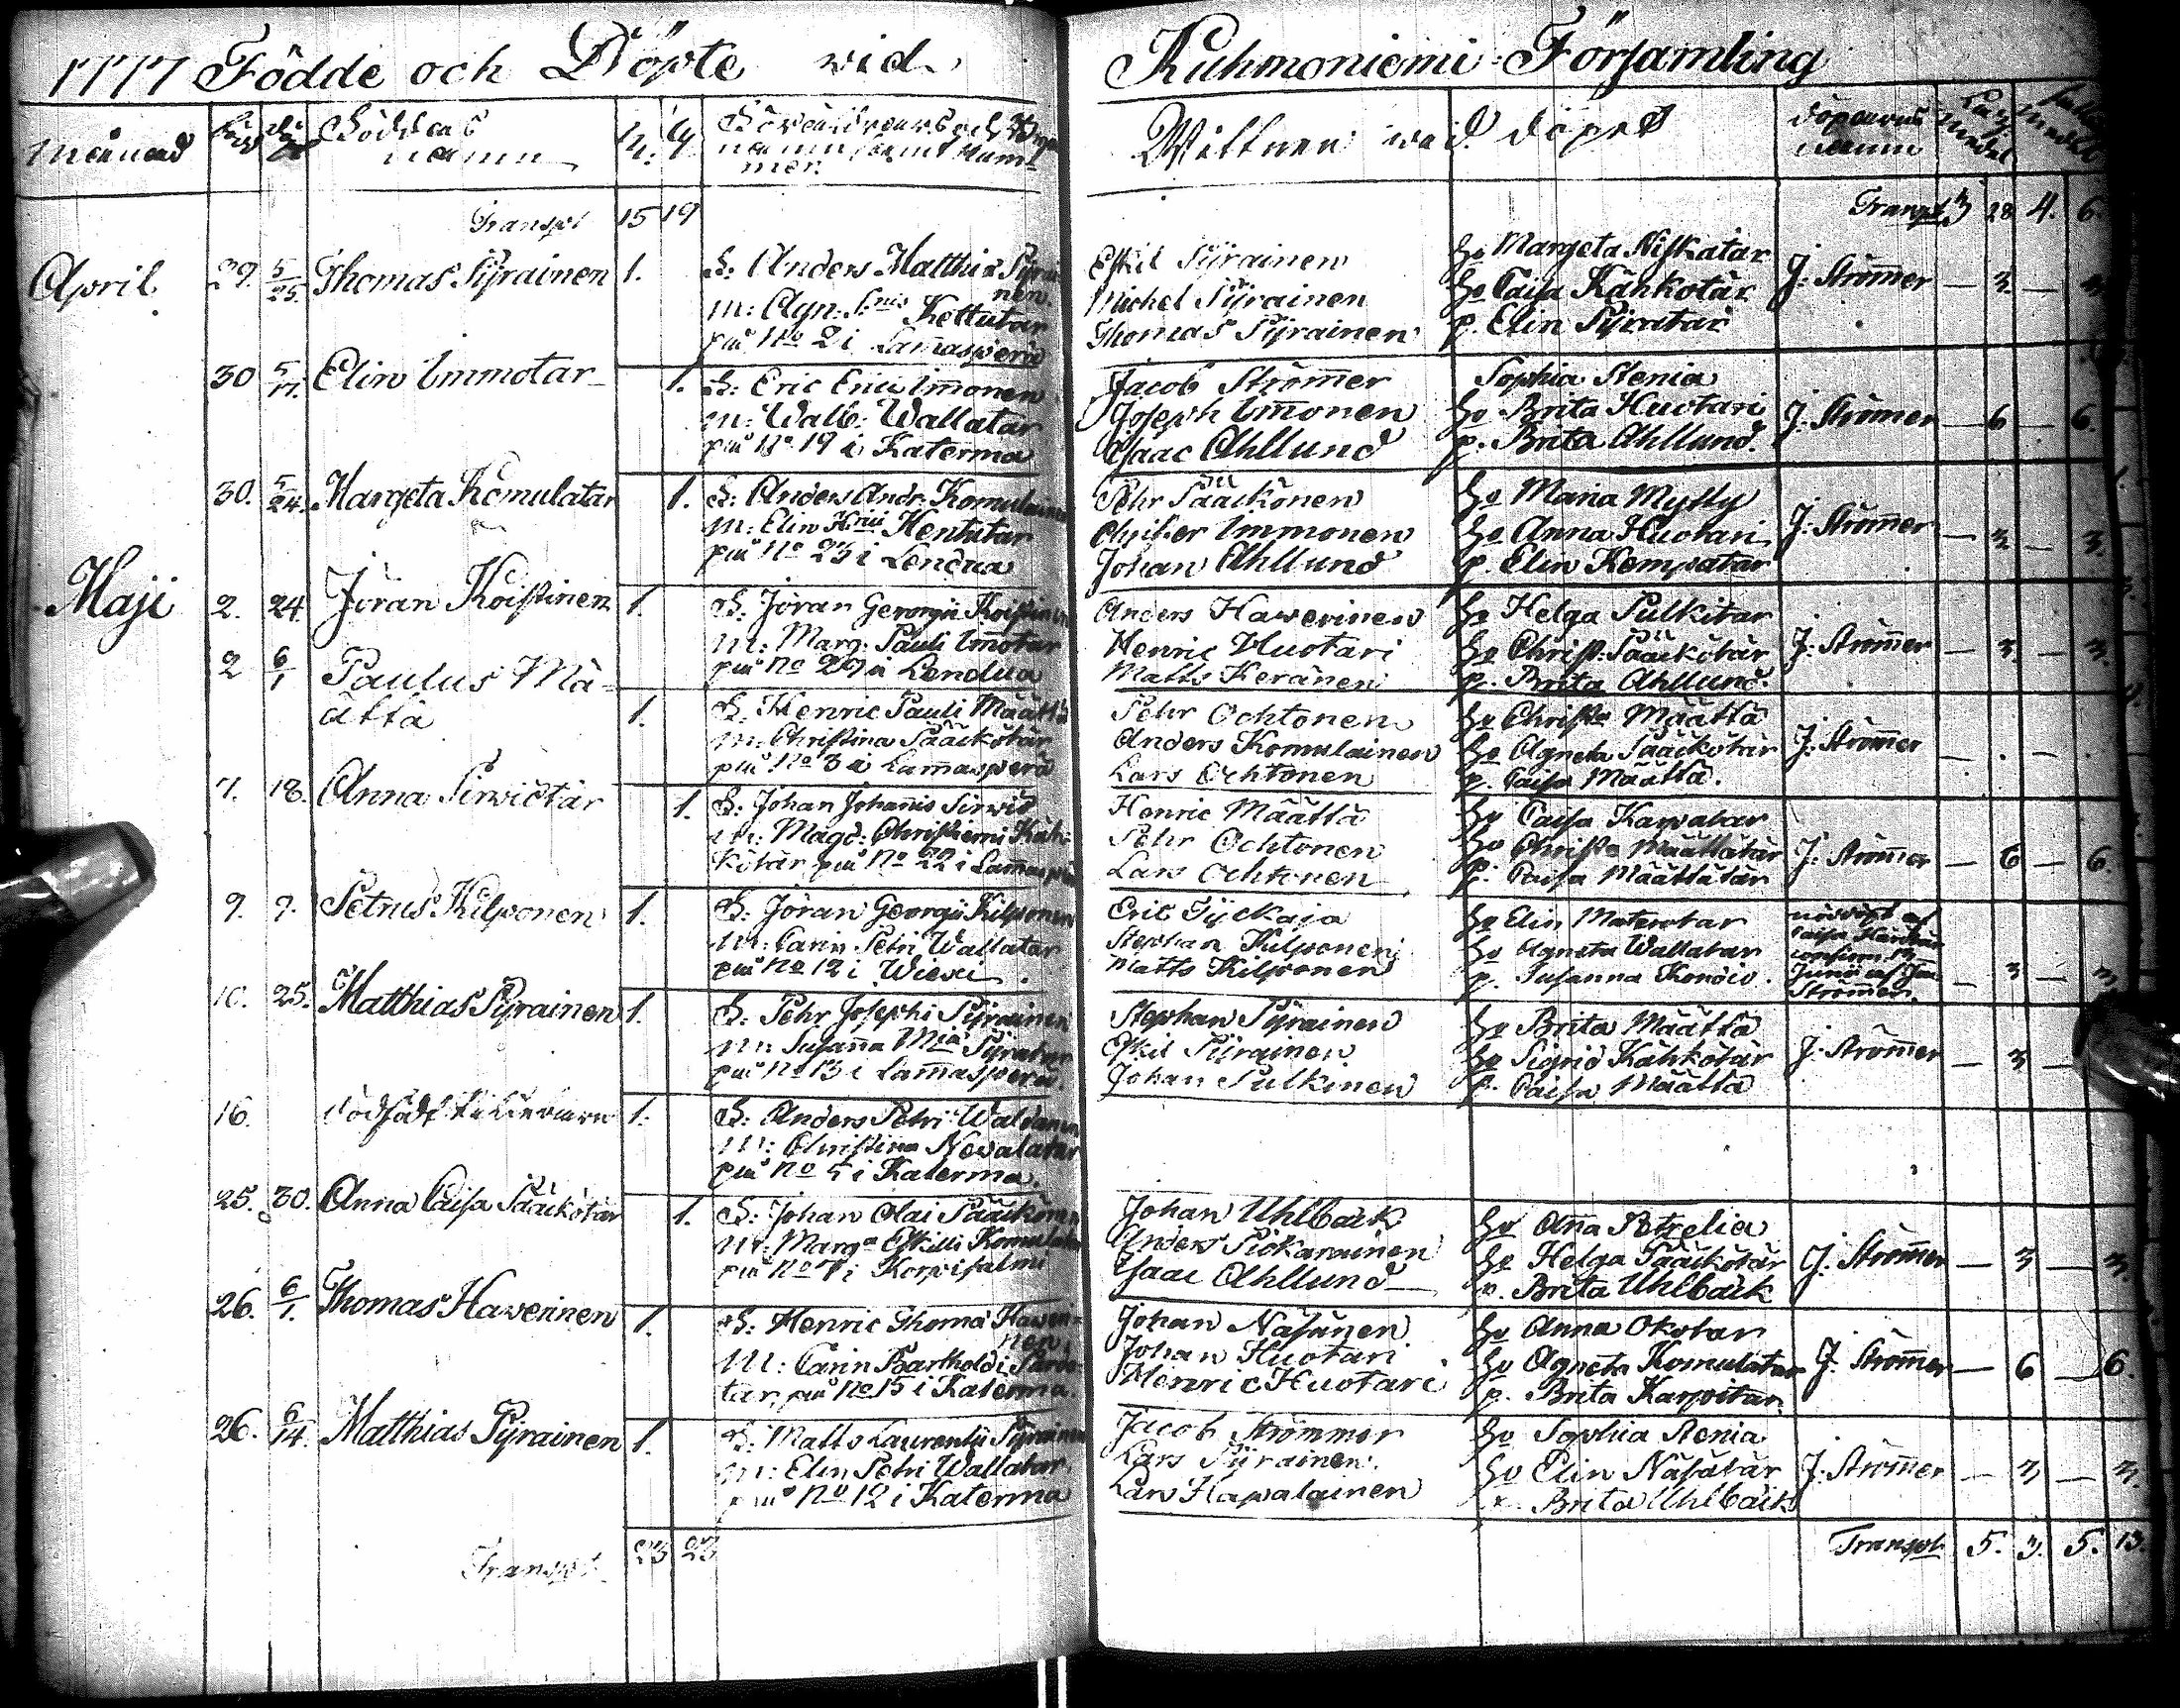 1777 Födde och Döpte wid
Kuhmoniemi Församling
Månad
namn
namn samt Hemman
mer.
Wittnen wid döpet
döparens
namn
Transpt 15 19
Transpt 3 28 4. 6.
April 29. 5/25. Thomas Pijrainen 1.
F: Anders Matthiæ Pijrai
nen.
M: Agn: Kettutar
på No 2 i Lamaspera
Eskil Pijrainen
Michel Pijrainen
Thomas Pijrainen
Ho Margeta Niskatar
Ho Caisa Kähkötär
p. Elin Pijratar
J: Strömmer — 3. — 3.
30 5/11. Elin Immotar 1.
F: Eric Erici Immonen
M: Walb: Wallatar
på No 19 i Katerma
Jacob Strömmer
Joseph Immonen
Isaac Ahllund
Sophia Stenia
Ho Brita Huotari
p. Brita Ahllund.
J: Strömmer — 6 — 6.
30. 5/24. Margeta Komulatar 1.
F: Anders Andr: Komulainen
M: Elin Hentutar
på No 23 i Lendua
Pehr Pääckönen
Immonen
Johan Ahllund
Ho Maria Mylly
Ho Anna Huotari
p. Elin Kempatar
J: Strömmer — 3 — 3.
Maji 2. 24. Jöran Koistinen 1.
F: Jöran Georgii Koistinen
M: Marg: Pauli Immotar
på No 29 i Lendua
Anders Hawerinen
Henric Huotari
Matts Keränen
Ho Helga Pulkitar
Ho Christ: Pääckötär
p. Brita Ahllund.
J: Strömmer — 3. — 3.
2 6/1 Paulus Mä-
ättä 1.
F: Henric Pauli Määttä
M: Christina Pääckötär
på No 3 i Lamaspera
Pehr Ochtonen
Anders Komulainen
Lars Ochtonen
Ho Christa Määttä
Ho Agneta Pääckötär
p. Caisa Määttä.
J: Strömmer — . — .
7. 18. Anna Sirwiötär 1.
F: Johan Johanis Sirwiö
M: Magd: Christierni Käh-
kötär på No 22 i Lamaspera
Henric Määttä
Pehr Ochtonen
Lars Ochtonen
Ho Caisa Karpatar
Ho Christa Määttätär
p. Caisa Määttätär
J: Strömmer — 6 — 6.
9. 9. Petrus Kilponen 1.
F: Jöran Georgii Kilponen
M: Carin Petri Wallatar
på No 12 i Wiexi.
Eric Tyckäjä
Stephan Kilponen
Matts Kilponen
Ho Elin Materotar
Ho Agneta Wallatar
p. Susanna
nöddöpt af
Caisa
Junii af Jac
Strömmer. — 3 — 3
10. 25. Matthias Pijrainen 1.
F: Pehr Josephi Pijrainen
M: Susanna Pijratar
på No 13 i Lamaspera.
Stephan Pijrainen
Eskil Pijrainen
Johan Pulkinen
Ho Brita Määttä
Ho Sigrid Kähkötär
p. Caisa Määttä
J: Strömmer — 3 —
16. dödfödt 1.
F: Anders Petri
M: Christina Nevalatar
på No 5 i Katerma.
25. 30. Anna Caisa Pääckötär 1.
F: Johan Olai Pääckönen
M: Marga Eskilli Komulatar
på No 7 i Korpisalmi
Johan Uhlbäck
Anders Pickarainen
Isaac Ahllund
Ho Anna Petrelia
Ho Helga Pääckötär
p. Brita Uhlbäck
J: Strömmer — 3 — 3.
26. 6/1. Thomas Hawerinen 1.
F: Henric Thomæ Haweri-
nen.
M: Carin Bartholdi
tar på No 15 i Katerma.
Johan Näsänen
Johan Huotari
Henric Huotari
Ho Anna Okotar
Ho Agneta Komulatar
p. Brita Karpitar
J: Strömmer — 6 — 6.
26. 6/14. Matthias Pijrainen 1.
F: Matts Laurentii Pijrainen
M: Elin Petri Wallatar
på No 12 i Katerma
Jacob Strömmer
Lars Pijrainen.
Lars Hapalainen
Ho Sophia Stenia
Ho Elin Näsätär
p. Brita Uhlbäck
J: Strömmer — 3 — 3.
Transpt 23 23
Transpt 5. 3. 5. 13.